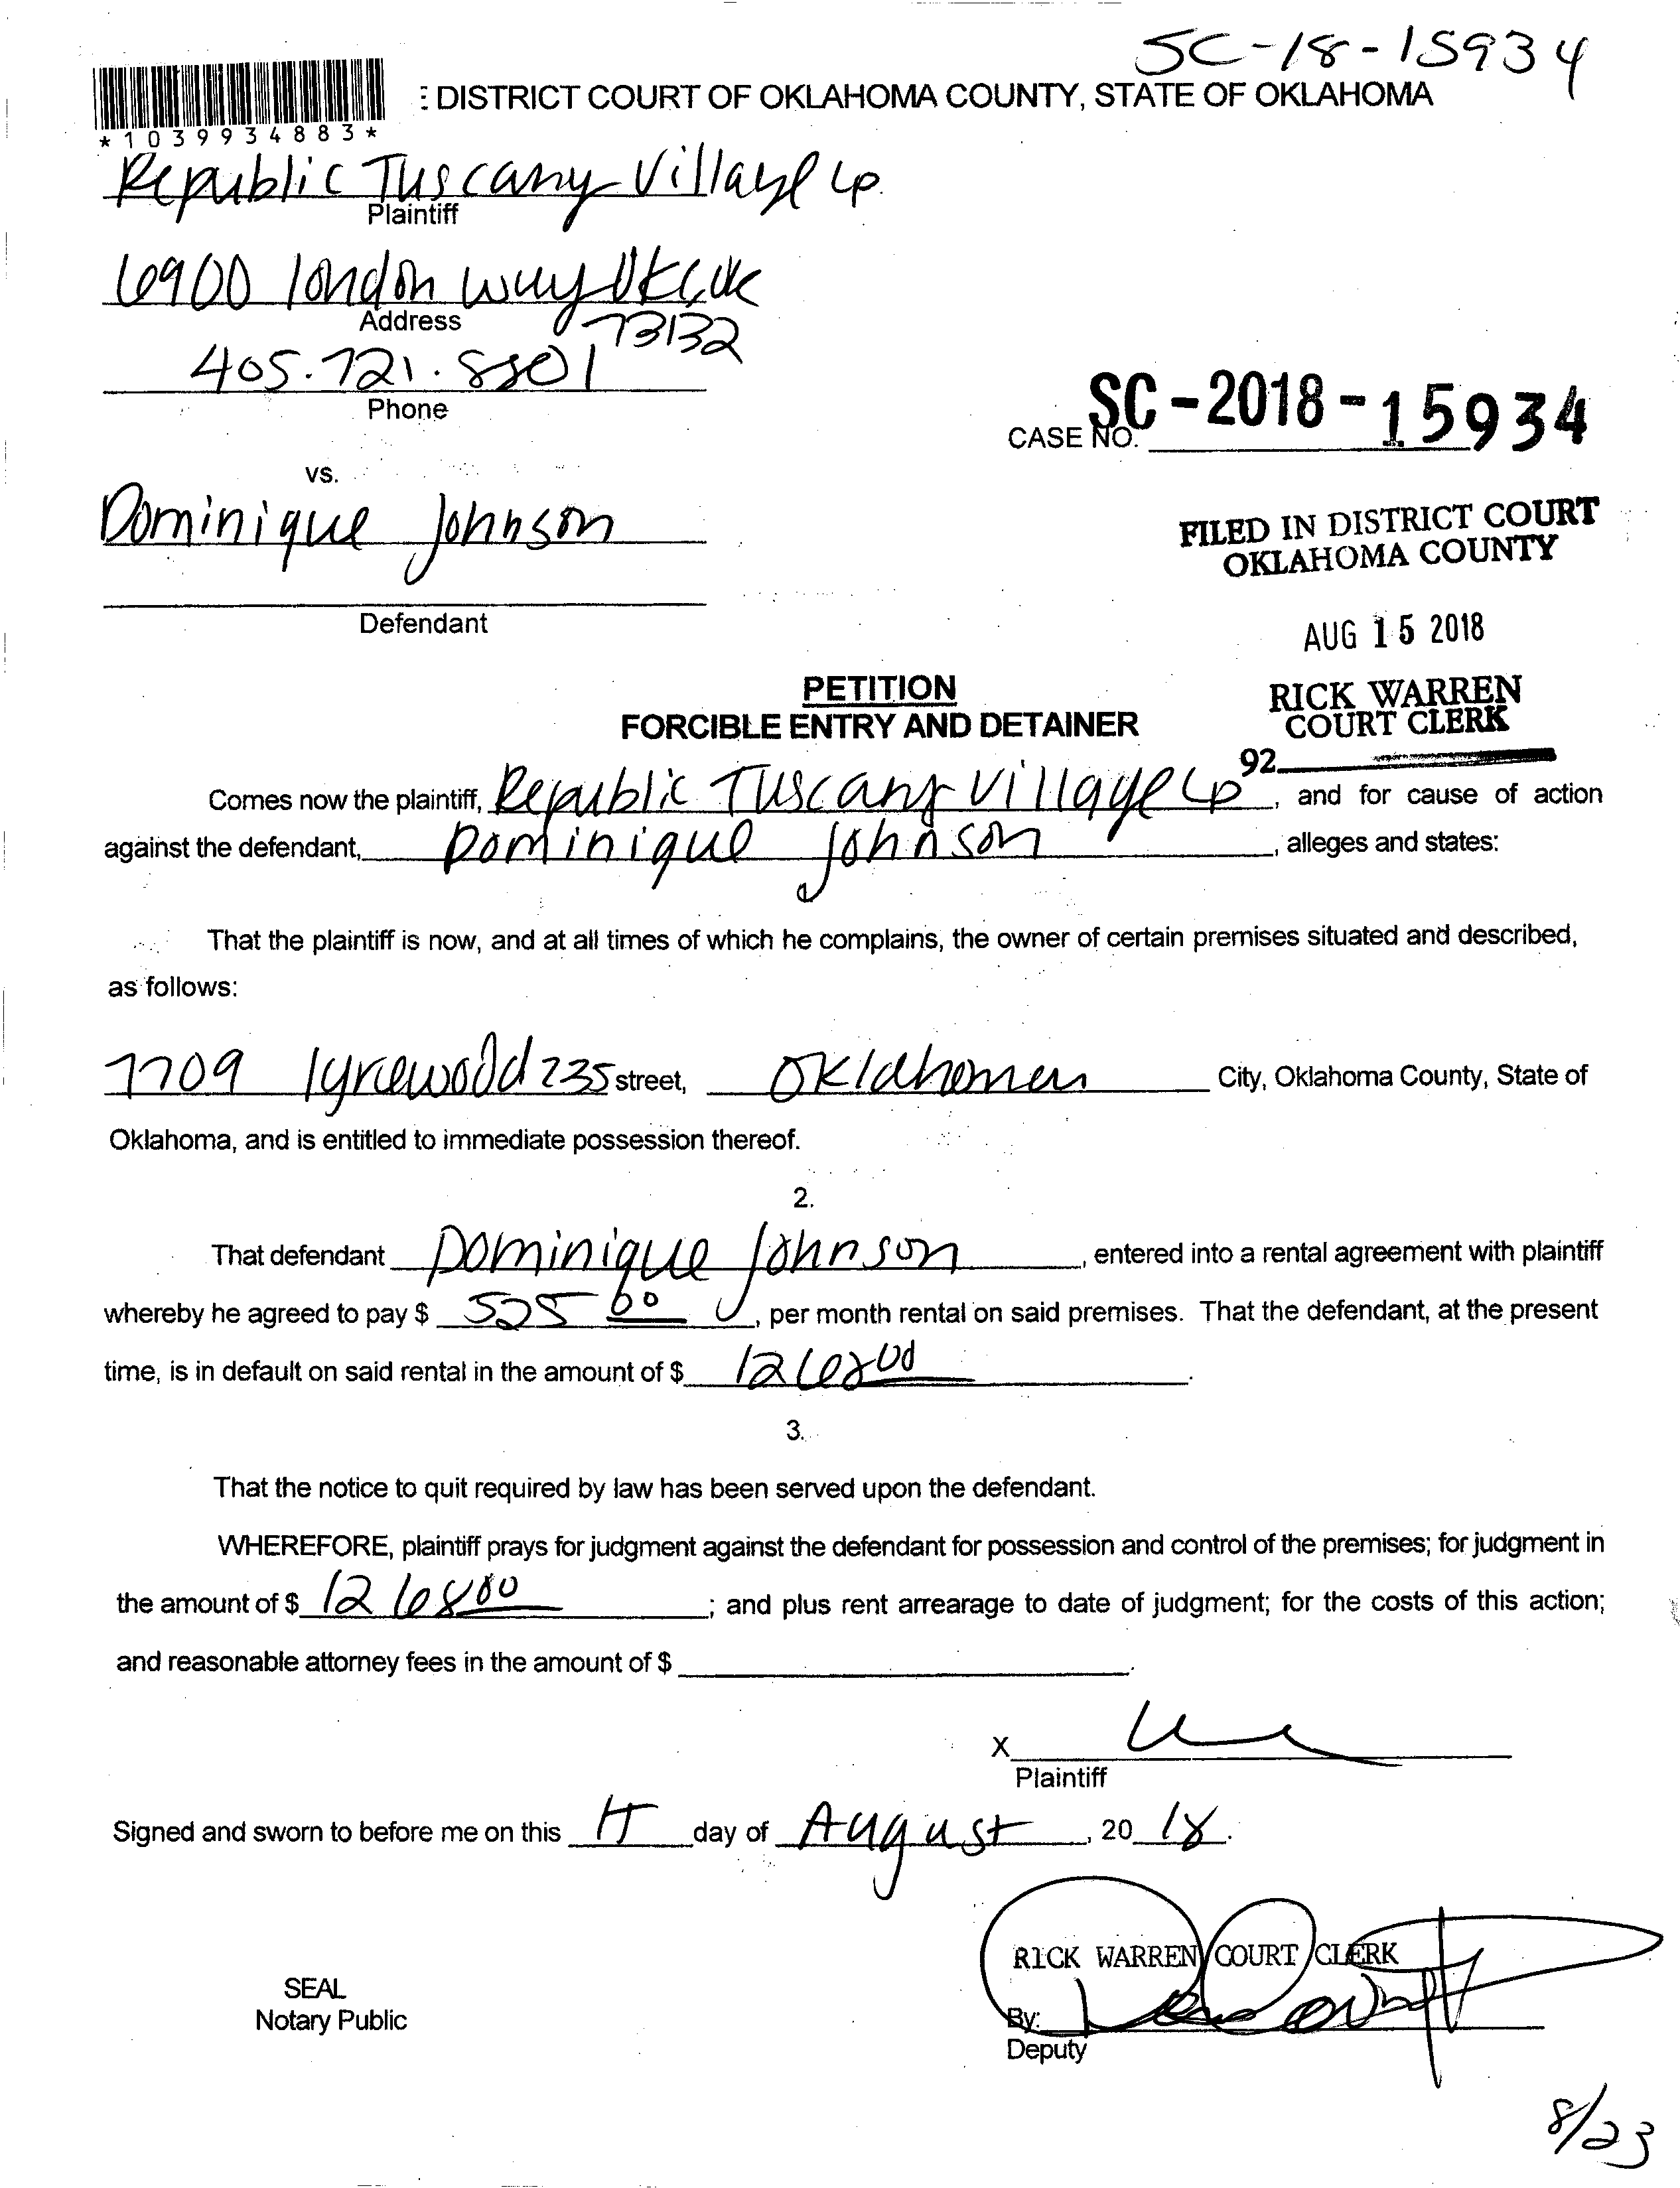 SC-18-15934
DISTRICT COURT OF OKLAHOMA COUNTY, STATE OF OKLAHOMA
*1039934883*
Republic Tuscany Village Lp.
Plaintiff
6900 london way OKC, OK
Address
73132
405.721.8801
Phone
SC-2018-15934
CASE NO.
vs.
Dominique Johnson
FILED IN DISTRICT COURT
OKLAHOMA COUNTY
Defendant
AUG 15 2018
PETITION
RICK WARREN
COURT CLERK
FORCIBLE ENTRY AND DETAINER
92
Comes now the plaintiff, Republic Tuscany Village Lp, and for cause of action
against the defendant, Dominique Johnson, alleges and states:
That the plaintiff is now, and at all times of which he complains, the owner of certain premises situated and described,
as follows:
7709 lyrewood 235 street, Oklahoma City, Oklahoma County, State of
Oklahoma, and is entitled to immediate possession thereof.
2.
That defendant Dominique Johnson, entered into a rental agreement with plaintiff
whereby he agreed to pay $ 525 00, per month rental on said premises. That the defendant, at the present
time, is in default on said rental in the amount of $ 1268 00.
3.
That the notice to quit required by law has been served upon the defendant.
WHEREFORE, plaintiff prays for judgment against the defendant for possession and control of the premises; for judgment in
the amount of $ 1268 00; and plus rent arrearage to date of judgment; for the costs of this action;
and reasonable attorney fees in the amount of $
X
Plaintiff
Signed and sworn to before me on this day of August, 20 18.
RICK WARREN COURT CLERK
SEAL
Notary Public
By:
Deputy
8/23